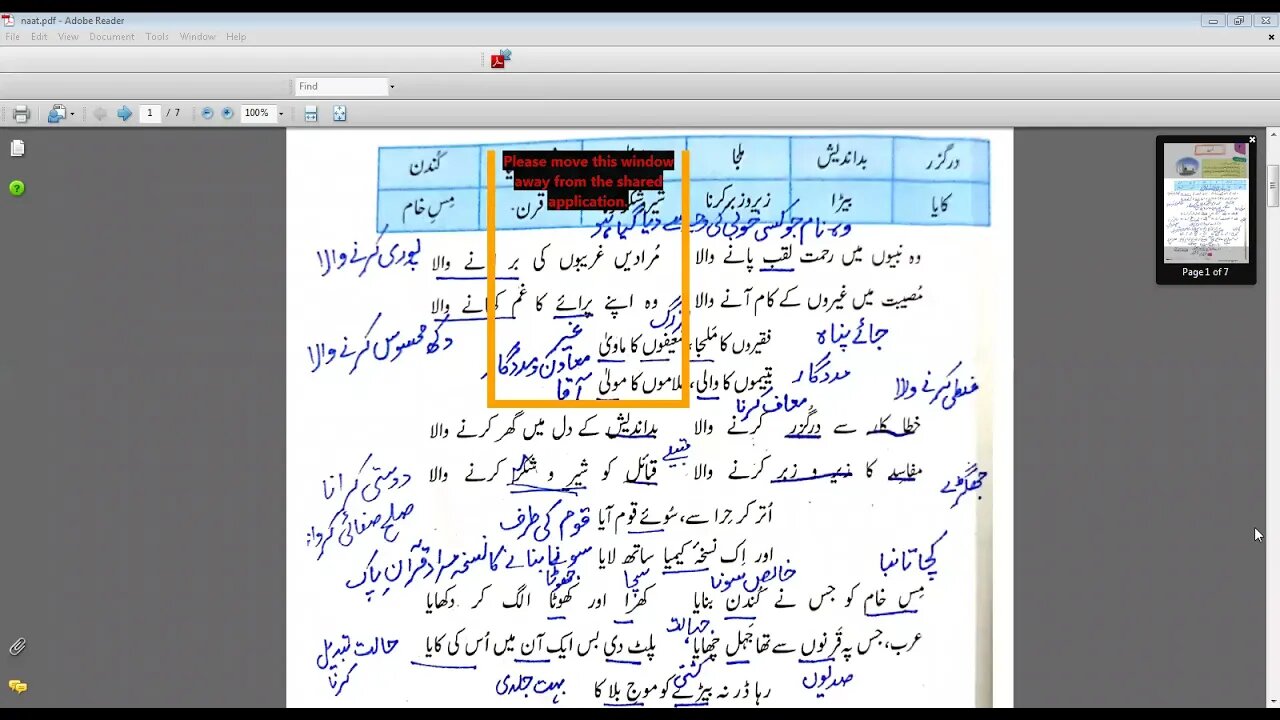 naat.pdf - Adobe Reader
File Edit View Document Tools Window Help
Find
1 / 7 100%
Please move this window
away from the shared
application.
درگزر بداندیش ملجا کُندن
کایا بیڑا زیروزبرکرنا شیروشکر قرن مِسِ خام
وہ نام جو کسی خوبی کی وجہ سے دیا گیا ہو
وہ نبیوں میں رحمت لقب پانے والا مُرادیں غریبوں کی بر لانے والا پوری کرنے والا
مُصیبت میں غیروں کے کام آنے والا وہ اپنے پرائے کا غم کھانے والا
غیر دکھ محسوس کرنے والا
فقیروں کا مَلجا، ضعیفوں کا ماویٰ جائے پناہ
معاون و مددگار
یتیموں کا والی، غلاموں کا مولیٰ مددگار
آقا معاف کرنا غلطی کرنے والا
خطا کار سے درگُزر کرنے والا بداندیش کے دل میں گھر کرنے والا
قبیلے
مفاسِد کا زیر و زبر کرنے والا قبائل کو شیر و شکر کرنے والا دوستی کرانا
جھگڑے صلح صفائی کروانا
اُتر کر حرا سے، سُوئے قوم آیا قوم کی طرف
اور اِک نسخۂ کیمیا ساتھ لایا سونا بنانے کا نسخہ مراد قرآن پاک
کچا تانبا خالص سونا سچا جھوٹا
مِس خام کو جس نے کُندن بنایا کھرا اور کھوٹا الگ کر دکھایا
جہالت
عرب، جس پہ قَرنوں سے تھا جَہل چھایا پلٹ دی بس ایک آن میں اُس کی کایا حالت تبدیل
کرنا
صدیوں کشتی بہت جلدی
رہا ڈر نہ بیڑے کو موجِ بلا کا
Page 1 of 7